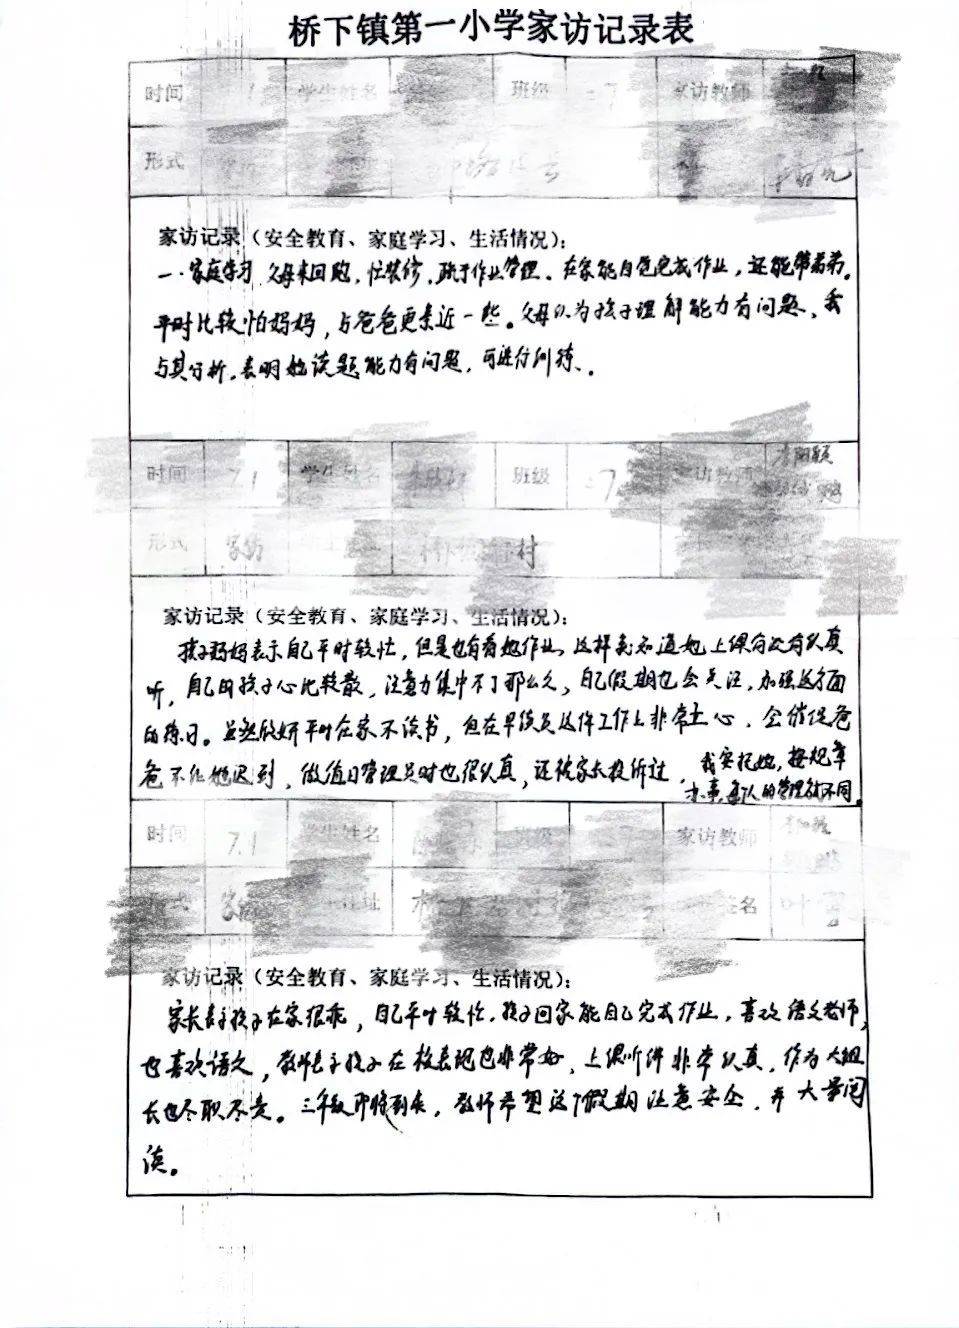 桥下镇第一小学家访记录表
时间 7.1 学生姓名 班级 二7 家访教师
形式
家访记录（安全教育、家庭学习、生活情况）：
一、家庭学习 父母来回跑，忙装修，疏于作业管理。在家能自觉完成作业，还能带弟弟。
平时比较怕妈妈，与爸爸更亲近一些。父母认为孩子理解能力有问题，我
与其分析，表明她读题能力有问题，可进行训练。
时间 7.1 学生姓名 班级 二7 家访教师
形式 家访 村
家访记录（安全教育、家庭学习、生活情况）：
孩子妈妈表示自己平时较忙，但是也有看她作业，这样我知道她上课有没有认真
听，自己的孩子心比较散，注意力集中不了那么久，自己假期也会关注，加强这方面
的练习。虽然欣妍平时在家不读书，但在早读员这件工作上非常上心，会催促爸
爸不让她迟到，做值日管理员时也很认真，还被家长投诉过，我安抚她，按规章
办事，每人的管理就不同。
时间 7.1 学生姓名 班级 二7 家访教师
形式 家访 址 签名 叶
家访记录（安全教育、家庭学习、生活情况）：
家长表示孩子在家很乖，自己平时较忙，孩子回家能自己完成作业，喜欢语文老师，
也喜欢语文，教师表示孩子在校表现也非常好，上课听讲非常认真，作为大组
长也尽职尽责。三年级即将到来，教师希望这个假期注意安全，并大量阅
读。